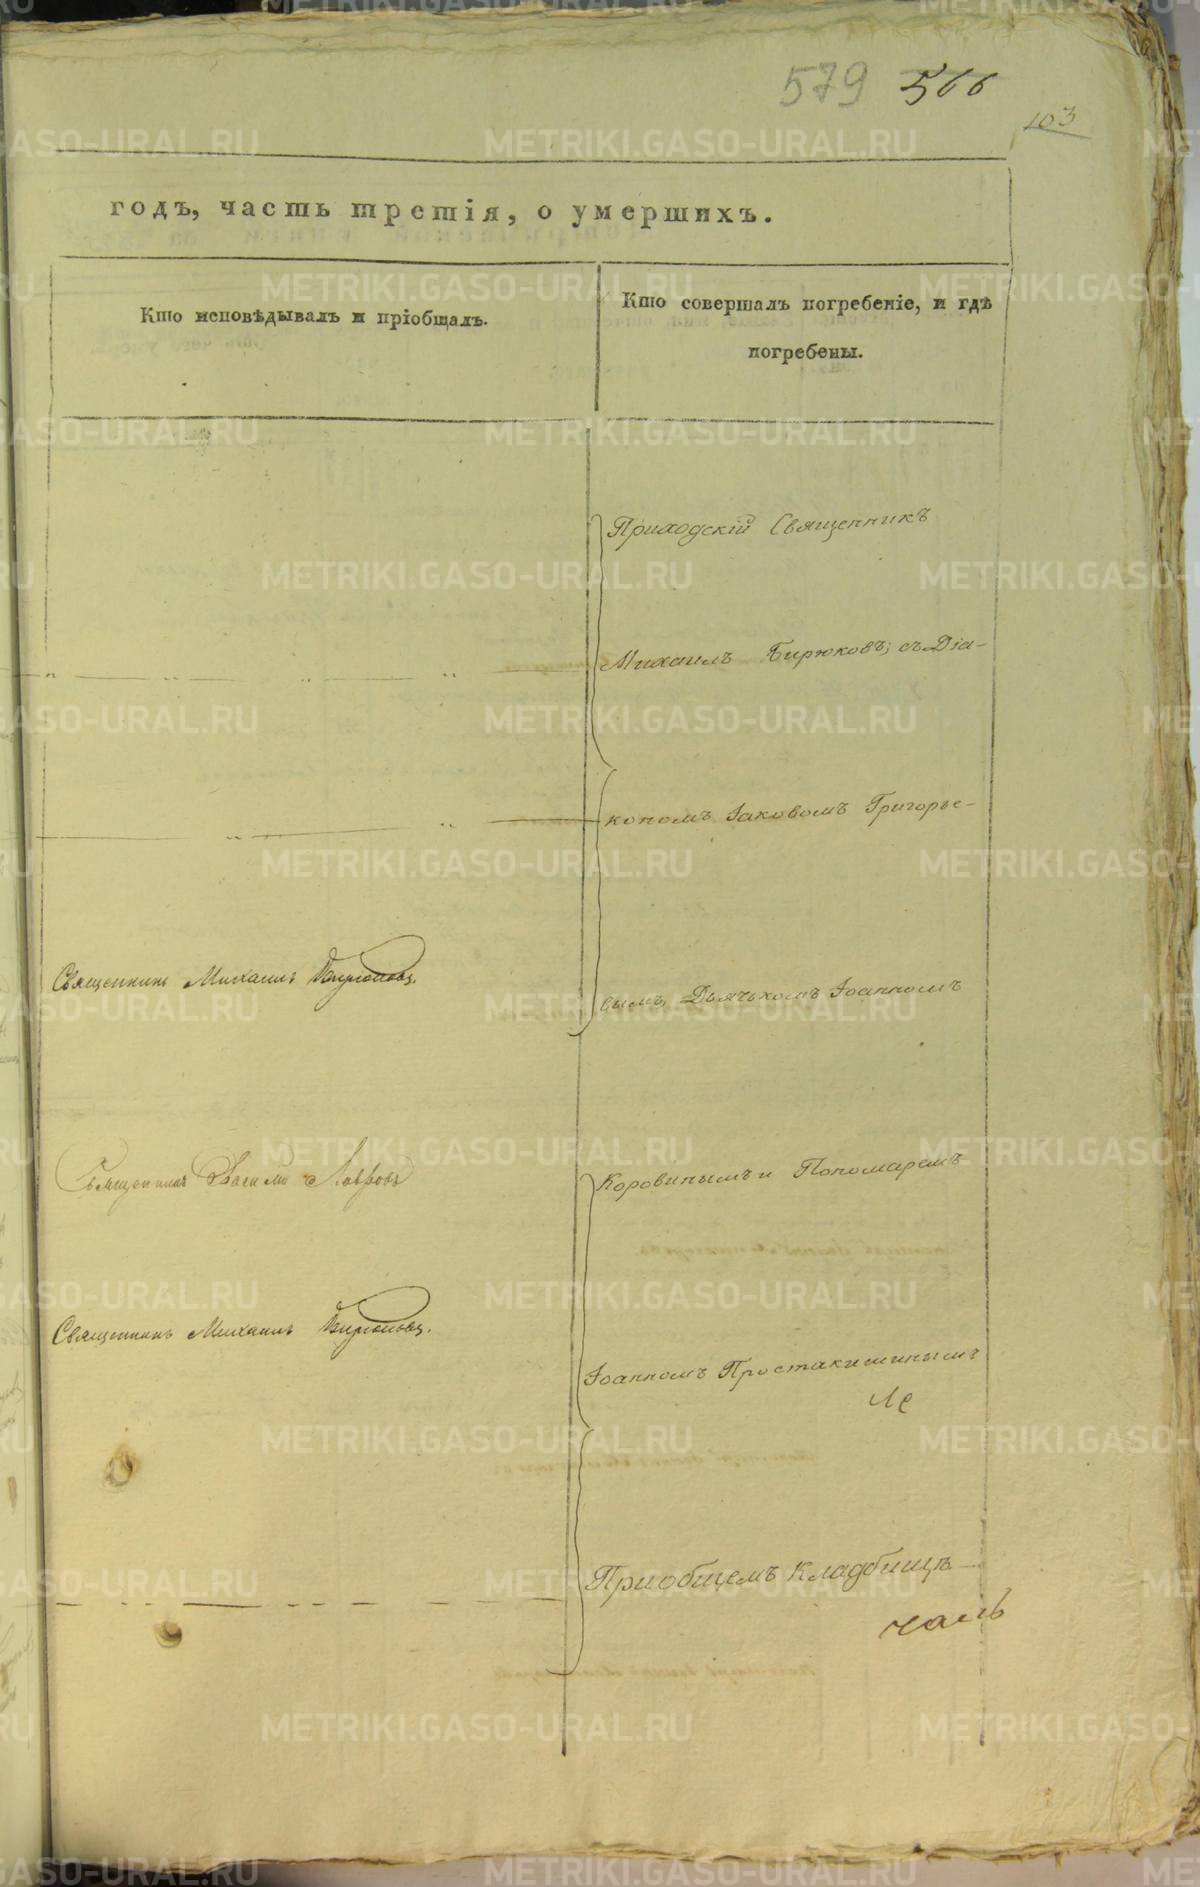 579 566
103
годъ, часть третія, о умершихъ.
Кто исповѣдывалъ и пріобщалъ.
Кто совершалъ погребеніе, и гдѣ
погребены.
Приходскій Священникъ
Михаилъ Бирюковъ; съ Діа-
кономъ Іаковомъ Григорье-
Священникъ Михаилъ Бирюковъ.
вымъ, Дьячькомъ Іоанномъ
Священникъ Василій Лавровъ
Коровинымъ и Пономаремъ
Священникъ Михаилъ Бирюковъ.
Іоанномъ Простакишинымъ
Приобщемъ Кладбищѣ
METRIKI.GASO-URAL.RU